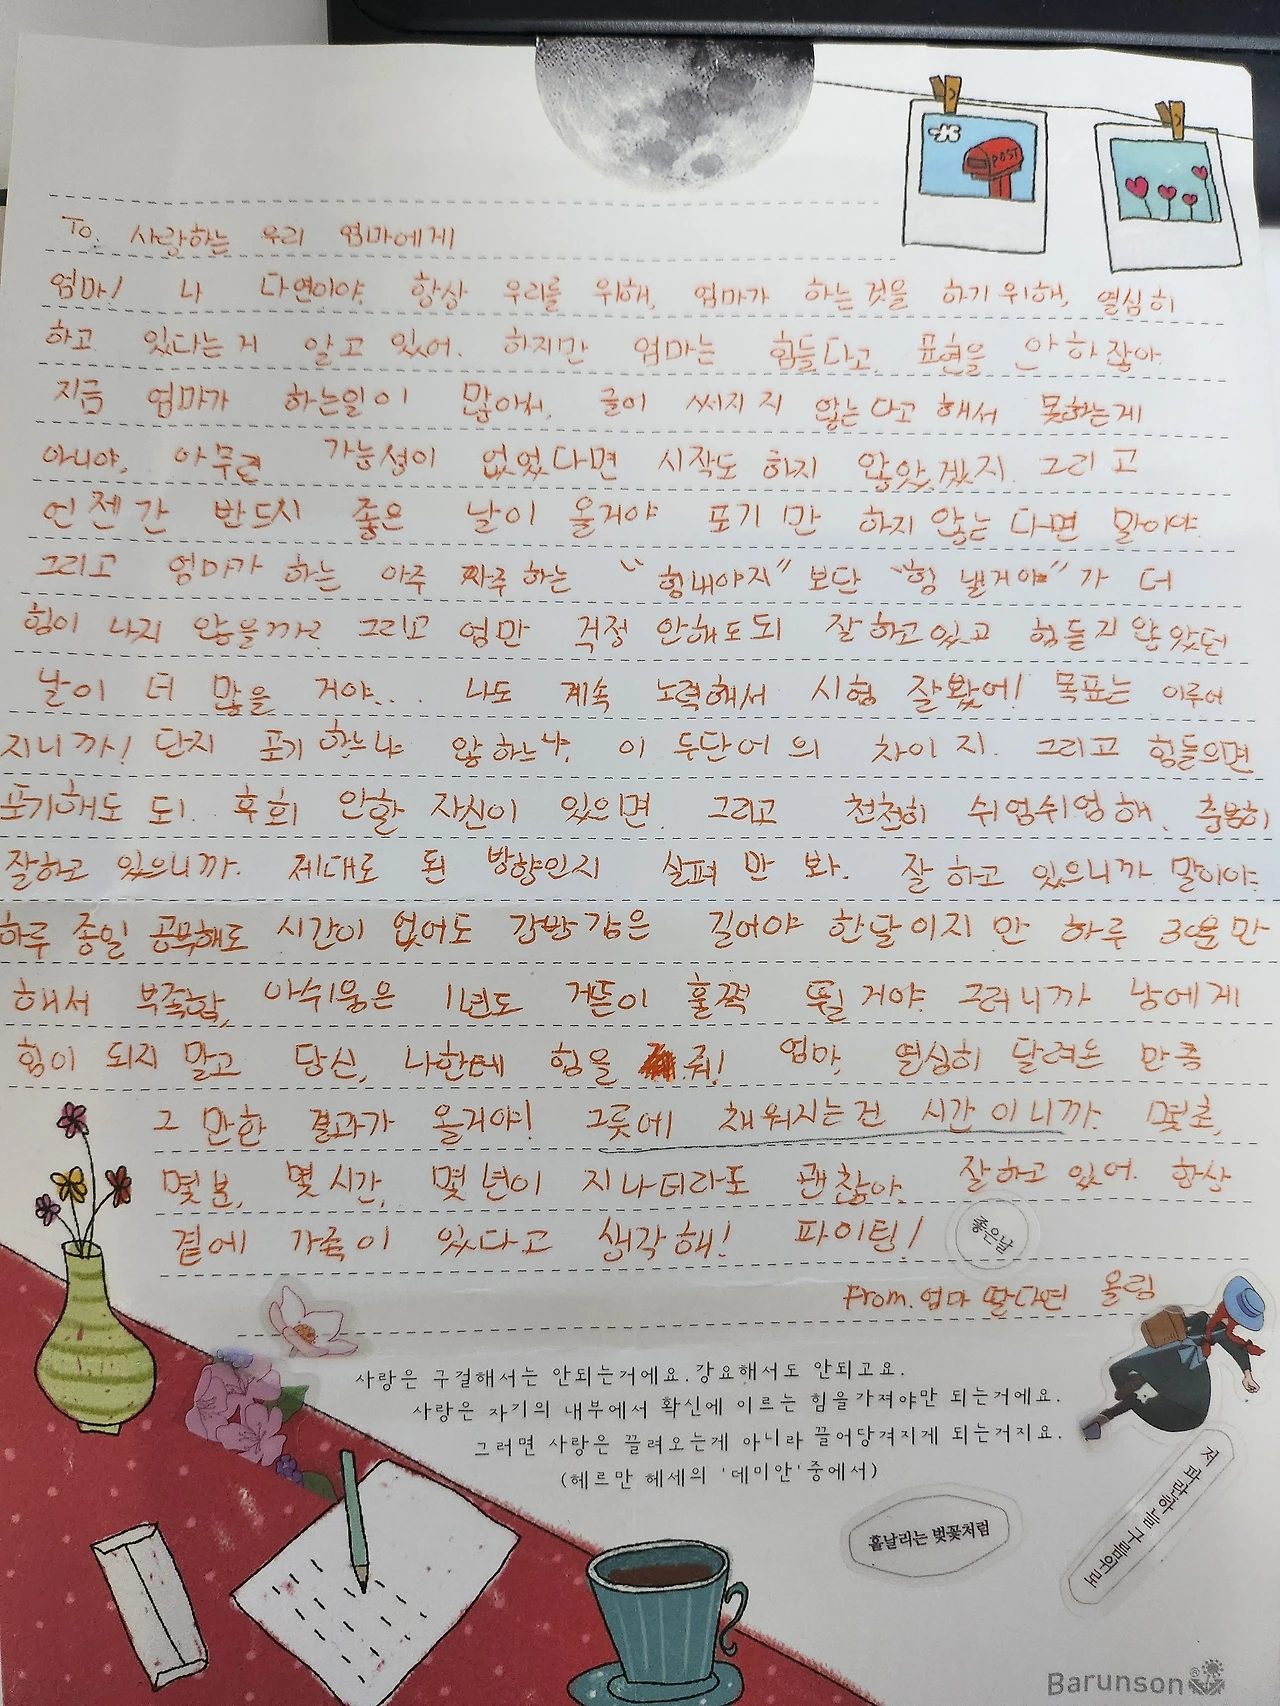 POST
To. 사랑하는 우리 엄마에게
엄마! 나 다연이야. 항상 우리를 위해, 엄마가 하는것을 하기위해, 열심히
하고 있다는거 알고 있어. 하지만 엄마는 힘들다고 표현을 안하잖아.
지금 엄마가 하는일이 많아서, 글이 써지지 않는다고 해서 못하는게
아니야. 아무런 가능성이 없었다면 시작도 하지 않았겠지. 그리고
언젠간 반드시 좋은 날이 올거야 포기만 하지않는다면 말이야.
그리고 엄마가 하는 아주 짜주하는 "힘내야지" 보단 "힘 낼거야"가 더
힘이 나지 않을까? 그리고 엄만 걱정 안해도되 잘하고있고 힘들지않았던
날이 더 많을 거야... 나도 계속 노력해서 시험 잘봤어! 목표는 이루어
지니까! 단지 포기하느냐 않하느냐. 이 두단어의 차이지. 그리고 힘들으면
포기해도 되. 후회 안할 자신이 있으면. 그리고 천천히 쉬엄쉬엄해. 충분히
잘하고 있으니까. 제대로 된 방향인지 살펴만 봐. 잘하고 있으니까 말이야.
하루 종일 공부해도 시간이 없어도 길어야 한달이지만 하루 30분만
해서 부족함, 아쉬움은 1년도 거뜬이 훌쩍 뛸거야. 그러니까 남에게
힘이 되지 말고 당신, 나한테 힘을 줘! 엄마, 열심히 달려온 만큼
그 만한 결과가 올거야! 그릇에 채워지는건 시간이니까. 몇초,
몇분, 몇시간, 몇년이 지나더라도 괜찮아. 잘하고 있어. 항상
곁에 가족이 있다고 생각해! 파이팅!
좋은날
From. 엄마 딸다연 올림
사랑은 구걸해서는 안되는거에요. 강요해서도 안되고요.
사랑은 자기의 내부에서 확신에 이르는 힘을가져야만 되는거에요.
그러면 사랑은 끌려오는게 아니라 끌어당겨지게 되는거지요.
(헤르만 헤세의 '데미안'중에서)
흩날리는 벚꽃처럼
저 구름위로
Barunson